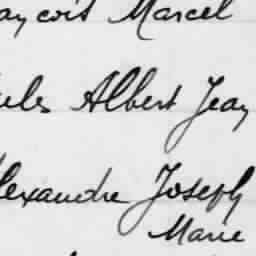 ançois Marcel
ules Albert Jean
lexandre Joseph
Marie